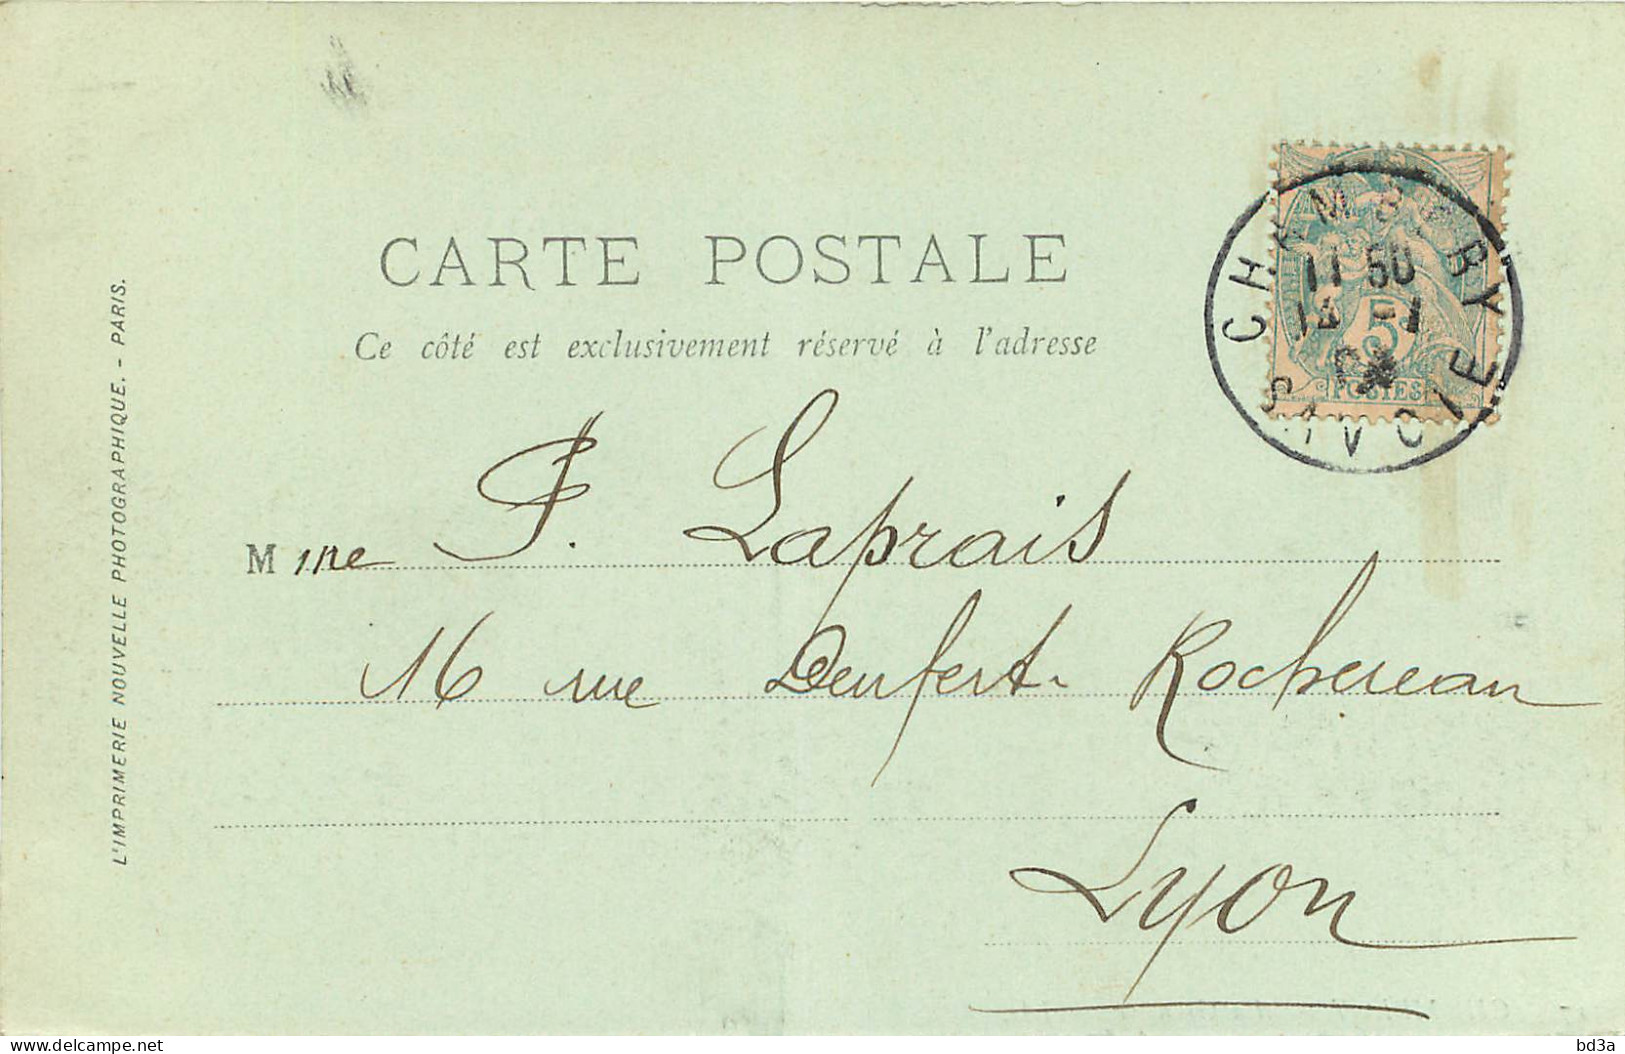 CARTE POSTALE
Ce côté est exclusivement réservé à l'adresse
CHAMBERY
11 50
SAVOIE
5
POSTES
Mme J. Laprais
16 rue Denfert-Rochereau
Lyon
L'IMPRIMERIE NOUVELLE PHOTOGRAPHIQUE. - PARIS.
delcampe.net
bd3a